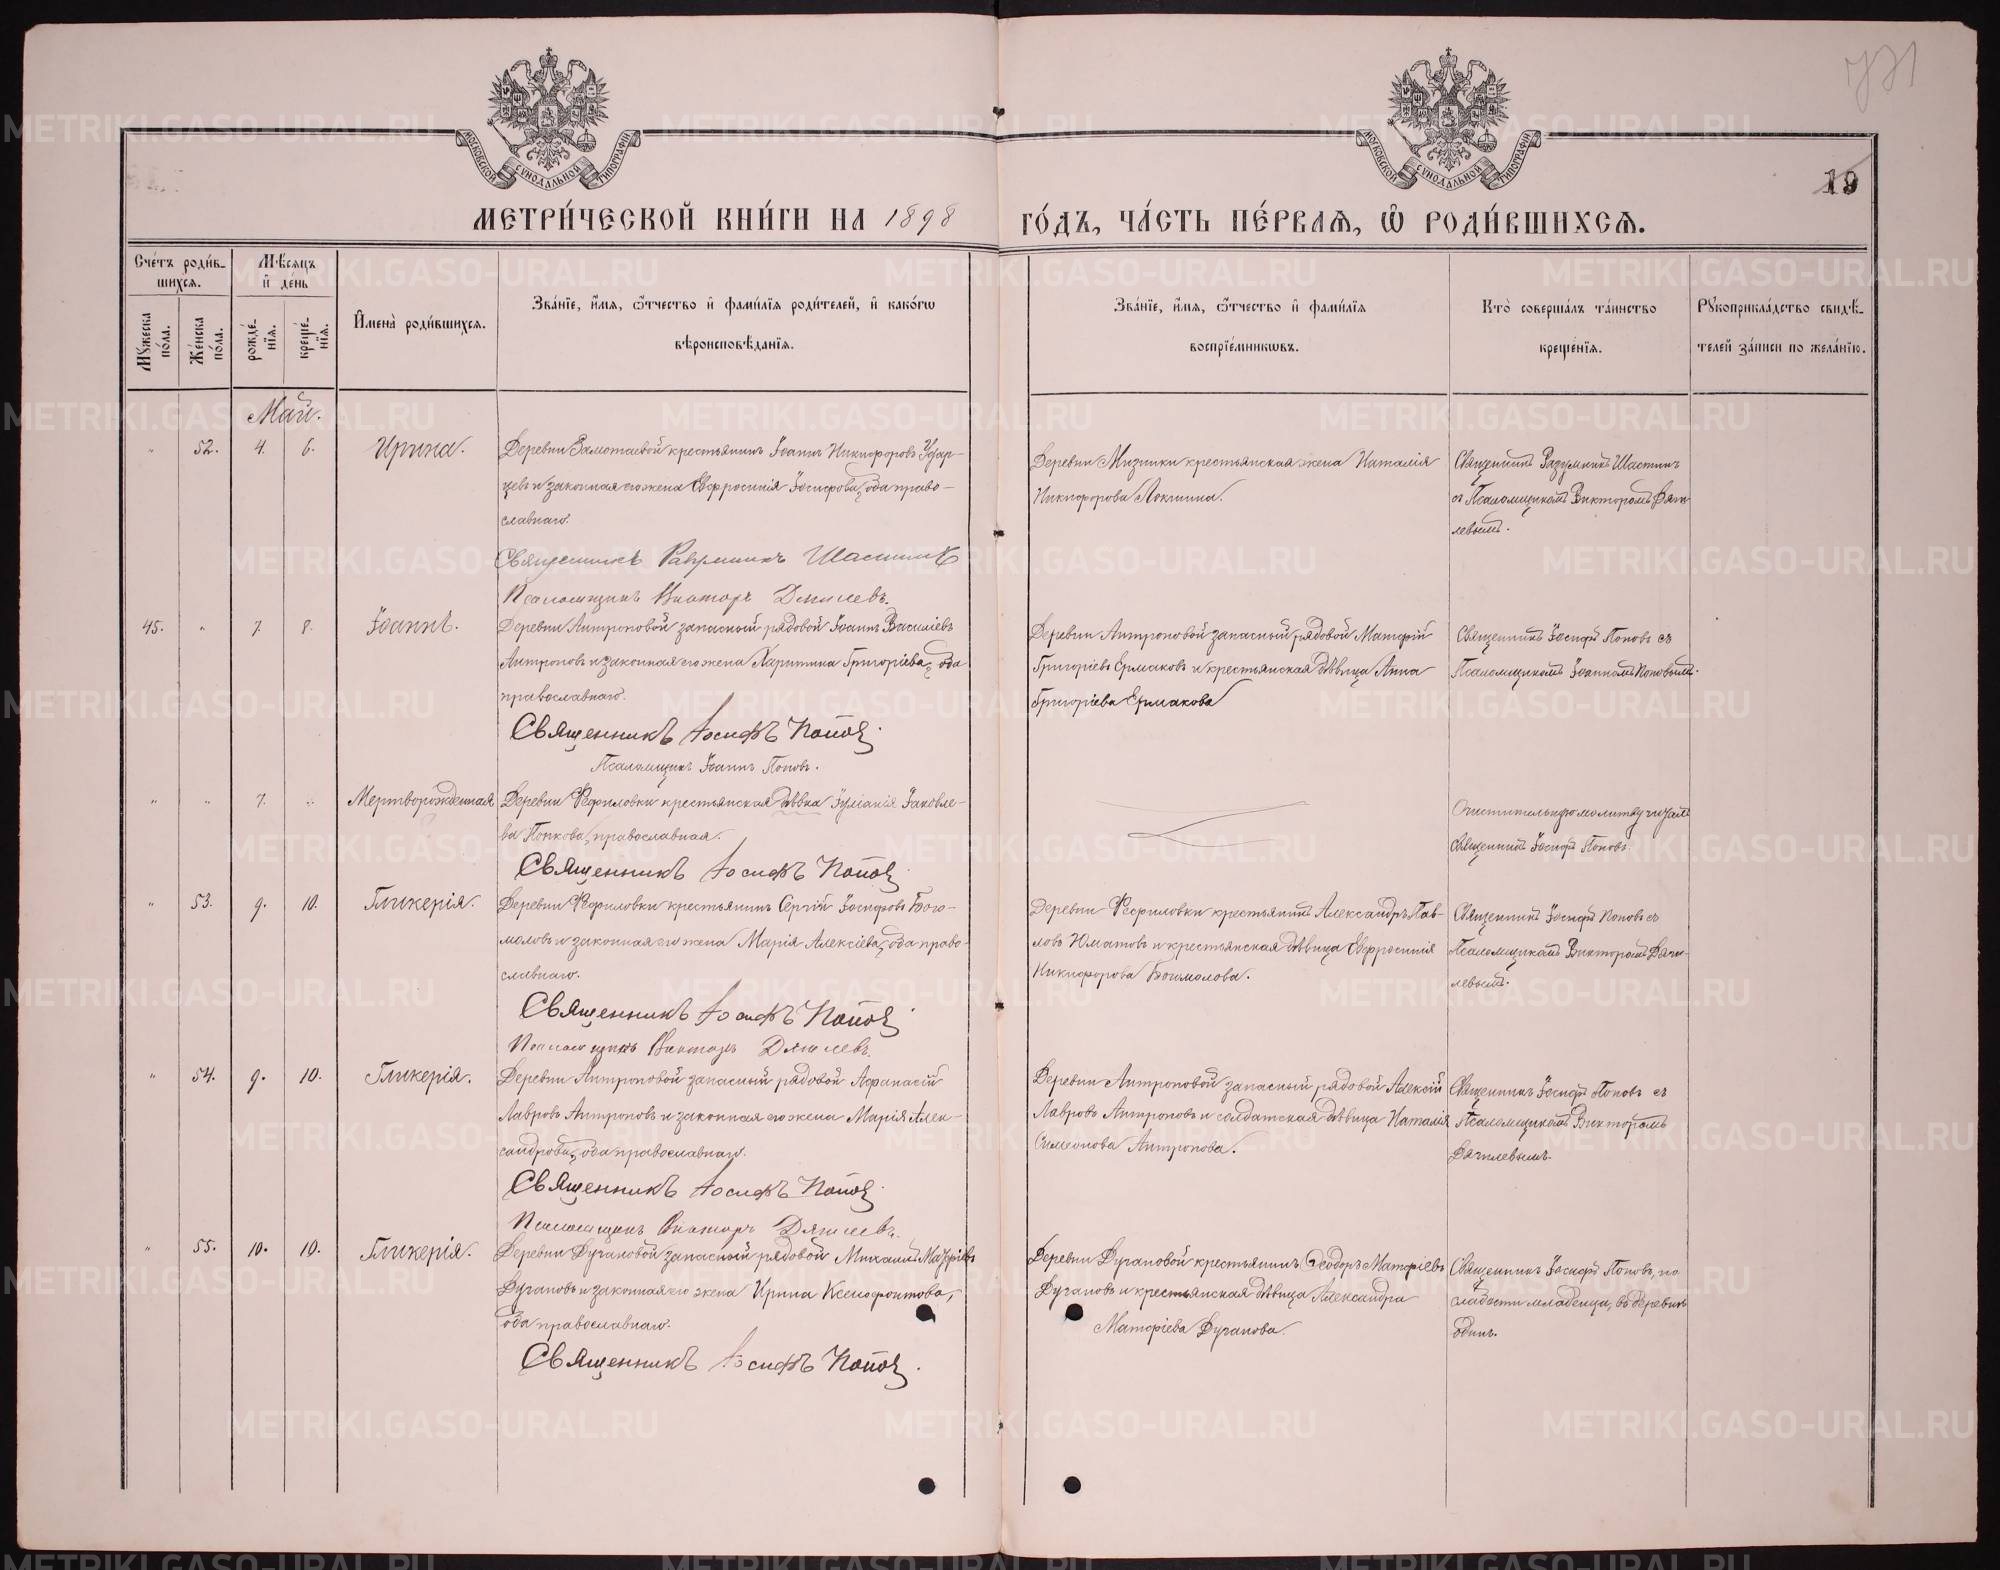 771
19
МОСКОВСКОЙ СѴНОДАЛЬНОЙ ТИПОГРАФІИ
МОСКОВСКОЙ СѴНОДАЛЬНОЙ ТИПОГРАФІИ
МЕТРИ́ЧЕСКОЙ КНИ́ГИ НА 1898 ГО́ДЪ, ЧА́СТЬ ПЕ́РВАѦ, Ѡ҆ РОДИ́ВШИХСѦ.
Сче́тъ роди́в-
шихсѧ.
Мѣ́сѧцъ
и҆ де́нь
Мꙋ́жеска
по́ла.
Же́нска
по́ла.
рожде́-
нїѧ.
креще́-
нїѧ.
И҆мена̀ роди́вшихсѧ.
Зва́нїе, и҆́мѧ, ѻ҆́тчество и҆ фами́лїѧ роди́телей, и҆ како́гѡ
вѣроисповѣ́данїѧ.
Зва́нїе, и҆́мѧ, ѻ҆́тчество и҆ фами́лїѧ
воспрїе́мникѡвъ.
Кто̀ соверша́лъ та́инство
креще́нїѧ.
Рꙋкоприкла́дство свидѣ́-
телей за́писи по жела́нїю.
Май.
" 52. 4. 6. Ирина.
Деревни Замотаевой крестьянинъ Іоаннъ Никифоровъ
и законная его жена Евфросинія Іосифова, оба право-
славнаго.
Священникъ Разумникъ Шастинъ
Псаломщикъ Викторъ Дягилевъ.
Деревни Мизинки крестьянская жена Наталія
Никифорова Локшина.
Священникъ Разумникъ Шастинъ
съ Псаломщикомъ Викторомъ Дяги-
левымъ.
45. " 7. 8. Іоаннъ.
Деревни Антроповой запасный рядовой Іоаннъ Василіевъ
Антроповъ и законная его жена Харитина Григоріева, оба
православнаго.
Священникъ Іосифъ Попов.
Псаломщикъ Іоаннъ Поповъ.
Деревни Антроповой запасный рядовой Матфій
Григоріевъ Ермаковъ и крестьянская дѣвица Анна
Григоріева Ермакова
Священникъ Іосифъ Поповъ съ
Псаломщикомъ Іоанномъ Поповымъ.
" " 7. " Мертворожденная
Деревни Фефиловки крестьянская дѣвка Іуліанія Іаковле-
ва Попкова, православная.
Священникъ Іосифъ Попов.
Очистительную молитву читалъ
Священникъ Іосифъ Поповъ.
" 53. 9. 10. Гликерія.
Деревни Фефиловки крестьянинъ Сергій Іосифовъ Бого-
моловъ и законная его жена Марія Алексіева, оба право-
славнаго.
Священникъ Іосифъ Попов.
Псаломщикъ Викторъ Дягилевъ.
Деревни Фефиловки крестьянинъ Александръ Пав-
ловъ Юматовъ и крестьянская дѣвица Евфросинія
Никифорова Богомолова.
Священникъ Іосифъ Поповъ съ
Псаломщикомъ Викторомъ Дяги-
левымъ.
" 54. 9. 10. Гликерія.
Деревни Антроповой запасный рядовой Афанасій
Лавровъ Антроповъ и законная его жена Марія Алек-
сандрова, оба православнаго.
Священникъ Іосифъ Попов.
Псаломщикъ Викторъ Дягилевъ.
Деревни Антроповой запасный рядовой Алексій
Лавровъ Антроповъ и солдатская дѣвица Наталія
Симеонова Антропова.
Священникъ Іосифъ Поповъ съ
Псаломщикомъ Викторомъ
Дягилевымъ.
" 55. 10. 10. Гликерія.
Деревни Дугановой запасный рядовой Михаилъ Матфіевъ
Дугановъ и законная его жена Ирина Ксенофонтова,
оба православнаго.
Священникъ Іосифъ Попов.
Деревни Дугановой крестьянинъ Ѳеодоръ Матфіевъ
Дугановъ и крестьянская дѣвица Александра
Матфіева Дуганова.
Священникъ Іосифъ Поповъ, по
слабости младенца, въ деревнѣ
одинъ.
METRIKI.GASO-URAL.RU